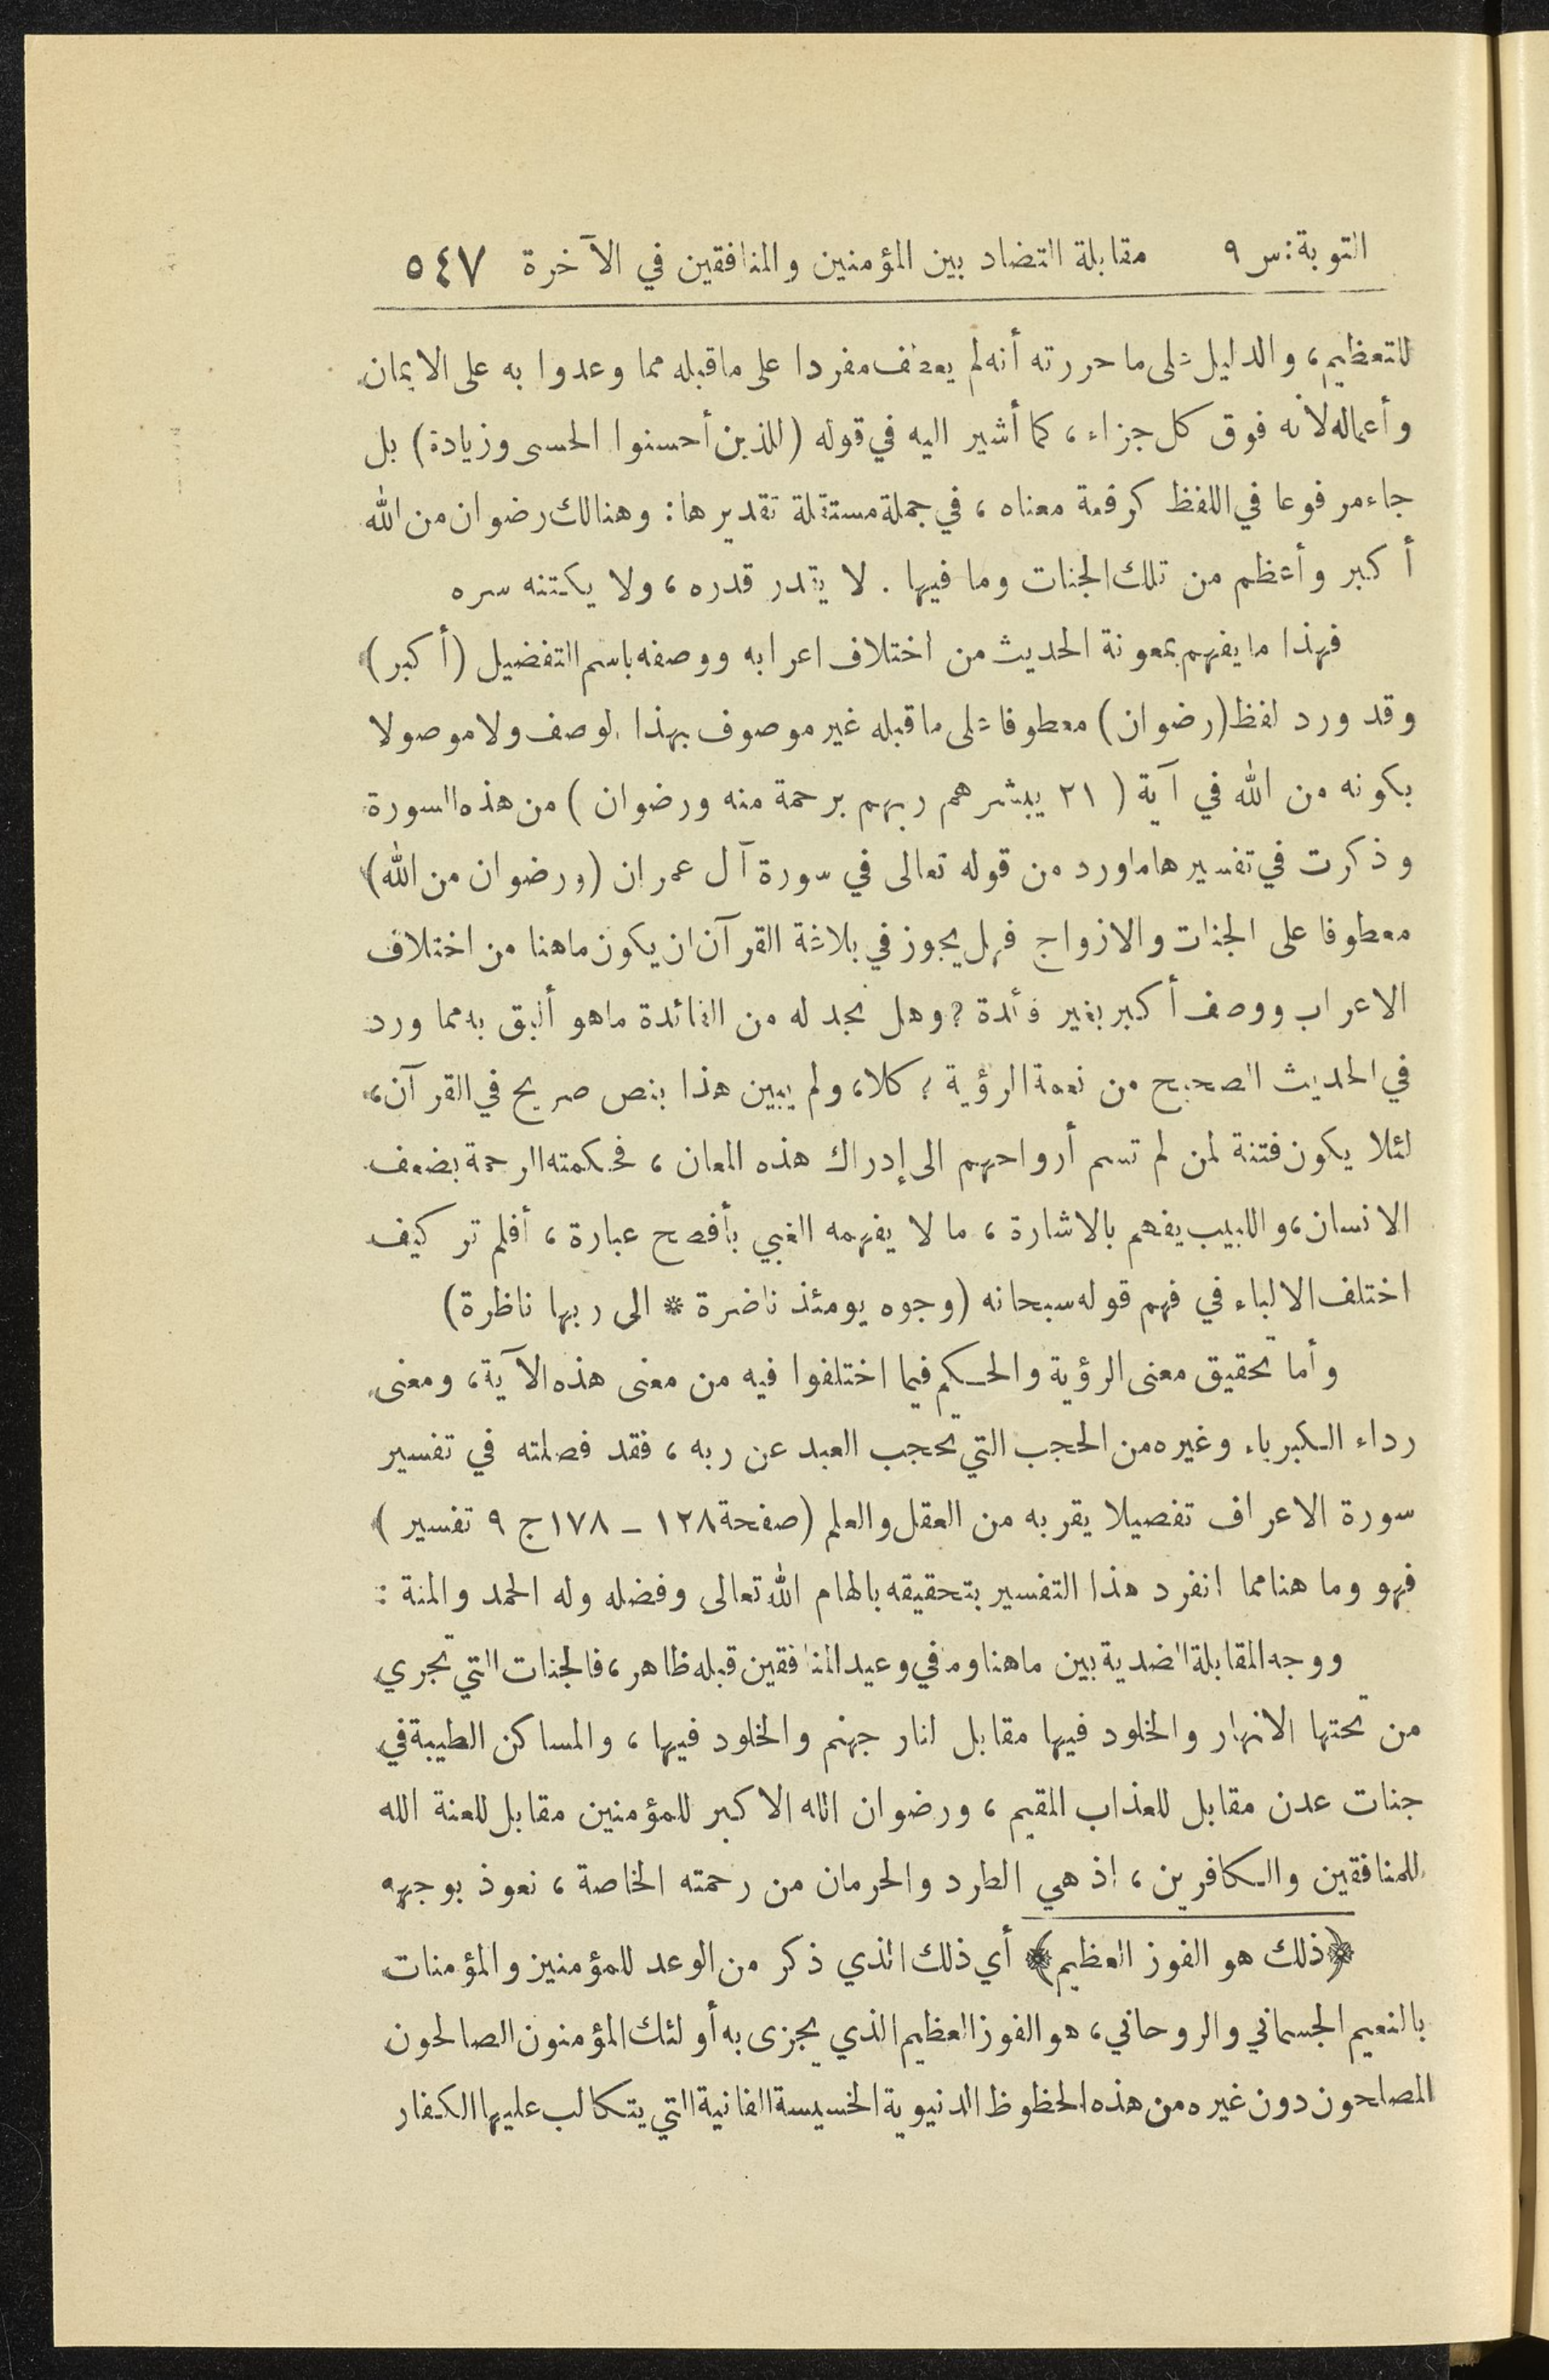 التوبة: س ٩ مقابلة التضاد بين المؤمنين والمنافقين في الآخرة ٥٤٧
للتعظيم، والدليل على ما حررته أنه لم يعطف مفردا على ما قبله مما وعدوا به على الايمان
وأعماله لأنه فوق كل جزاء، كما أشير اليه في قوله (للذين أحسنوا الحسى وزيادة) بل
جاء مرفوعا في اللفظ كرفعة معناه، في جملة مستقلة تقديرها: وهنالك رضوان من الله
أكبر وأعظم من تلك الجنات وما فيها. لا يقدر قدره، ولا يكتنه سره
فهذا ما يفهم بمعونة الحديث من اختلاف اعرابه ووصفه باسم التفضيل (أكبر)
وقد ورد لفظ (رضوان) معطوفا على ما قبله غير موصوف بهذا الوصف ولا موصولا
بكونه من الله في آية (٢١ يبشرهم ربهم برحمة منه ورضوان) من هذه السورة
وذكرت في تفسيرها ما ورد من قوله تعالى في سورة آل عمران (ورضوان من الله)
معطوفا على الجنات والازواج فهل يجوز في بلاغة القرآن ان يكون ما هنا من اختلاف
الاعراب ووصف أكبر بغير فائدة؟ وهل نجد له من الفائدة ما هو أليق به مما ورد
في الحديث الصحيح من نعمة الرؤية؟ كلا، ولم يبين هذا بنص صريح في القرآن،
لئلا يكون فتنة لمن لم تسم أرواحهم الى إدراك هذه المعان، فحكمته الرحمة بضعف
الانسان، واللبيب يفهم بالاشارة، ما لا يفهمه الغبي بأفصح عبارة، أفلم تر كيف
اختلف الالباء في فهم قوله سبحانه (وجوه يومئذ ناضرة * الى ربها ناظرة)
وأما تحقيق معنى الرؤية والحكم فيما اختلفوا فيه من معنى هذه الآية، ومعنى
رداء الكبرياء وغيره من الحجب التي تحجب العبد عن ربه، فقد فصلته في تفسير
سورة الاعراف تفصيلا يقربه من العقل والعلم (صفحة ١٢٨ - ١٧٨ ج ٩ تفسير)
فهو وما هنا مما انفرد هذا التفسير بتحقيقه بالهام الله تعالى وفضله وله الحمد والمنة:
ووجه المقابلة الضدية بين ما هنا وما في وعيد المنافقين قبله ظاهر، فالجنات التي تجري
من تحتها الانهار والخلود فيها مقابل لنار جهنم والخلود فيها، والمساكن الطيبة في
جنات عدن مقابل للعذاب المقيم، ورضوان الله الاكبر للمؤمنين مقابل للعنة الله
للمنافقين والكافرين، اذ هي الطرد والحرمان من رحمته الخاصة، نعوذ بوجهه
﴿ذلك هو الفوز العظيم﴾ أي ذلك الذي ذكر من الوعد للمؤمنين والمؤمنات
بالنعيم الجسماني والروحاني، هو الفوز العظيم الذي يجزى به أولئك المؤمنون الصالحون
المصلحون دون غيره من هذه الحظوظ الدنيوية الخسيسة الفانية التي يتكالب عليها الكفار